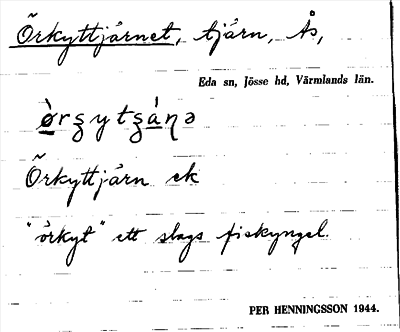 Örkyttjärnet, tjärn, Ås,
Eda sn, Jösse hd, Värmlands län.
Örkyttjärn ek
"örkyt" ett slags fiskyngel.
PER HENNINGSSON 1944.